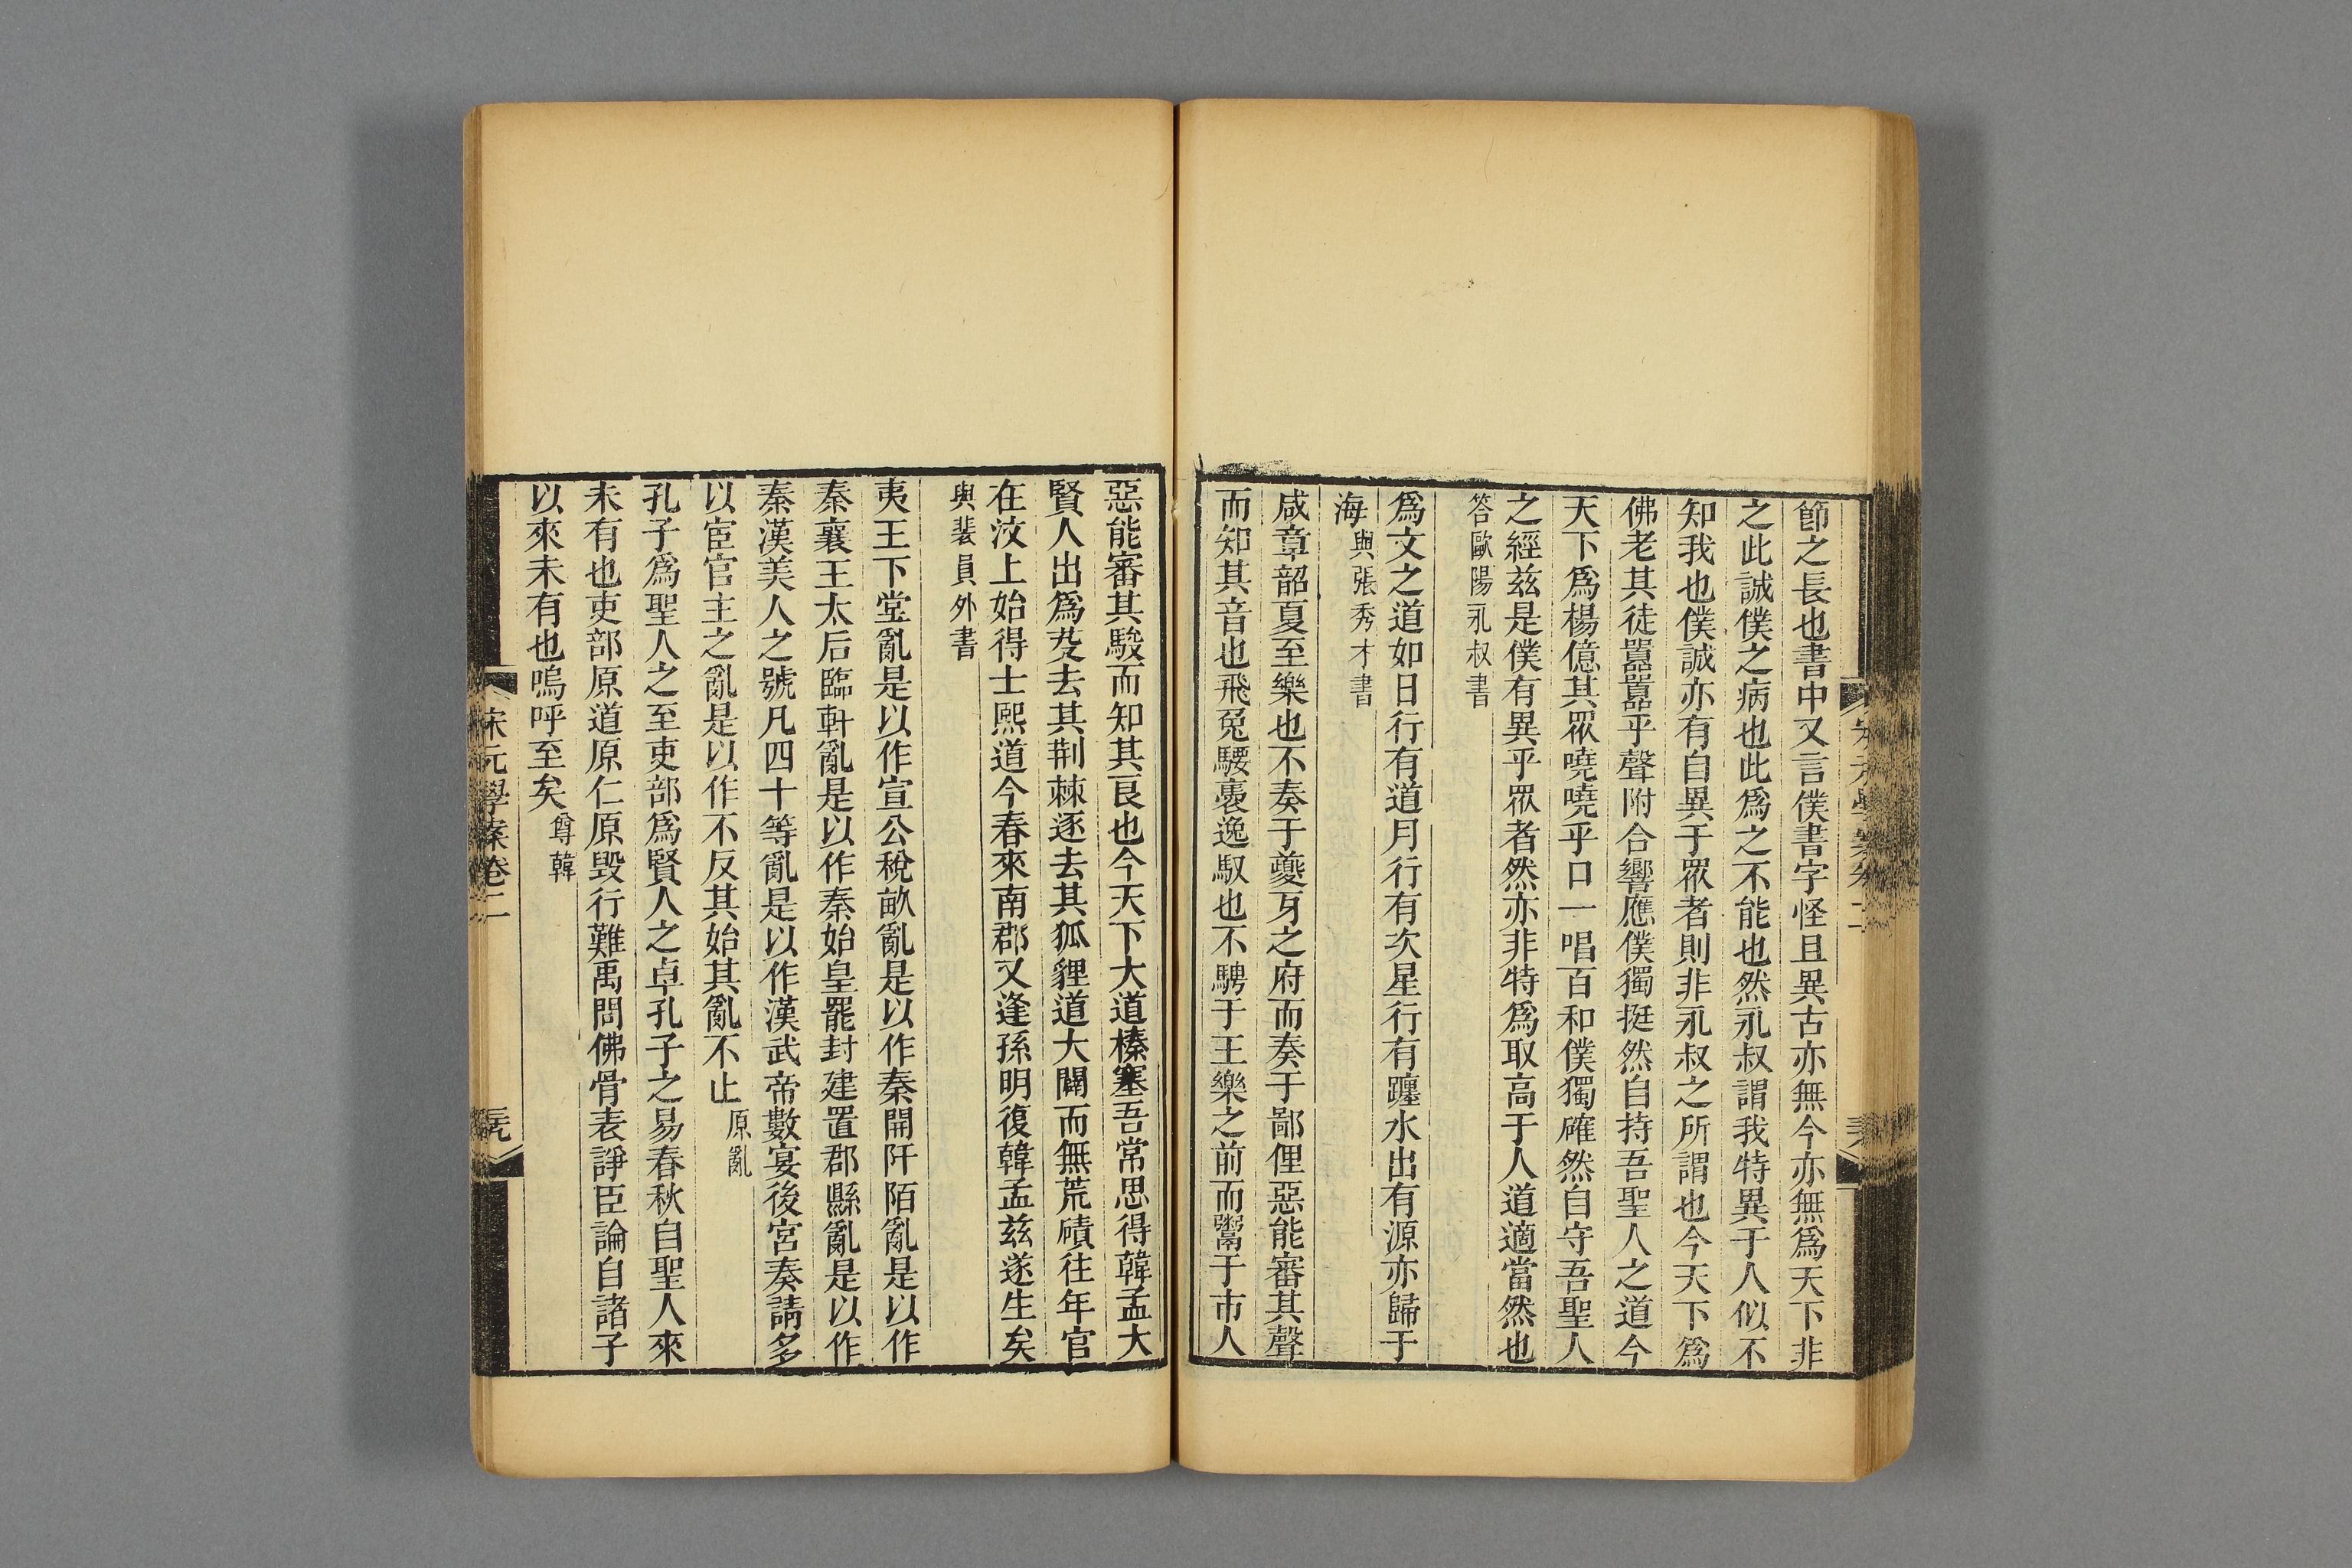 節之長也書中又言僕書字怪且異古亦無今亦無爲天下非
之此誠僕之病也此爲之不能也然永叔謂我特異于人似不
知我也僕誠亦有自異于眾者則非永叔之所謂也今天下爲
佛老其徒囂囂乎聲附合響應僕獨挺然自持吾聖人之道今
天下爲楊億其眾嘵嘵乎口一唱百和僕獨確然自守吾聖人
之經兹是僕有異乎眾者然亦非特爲取高于人道適當然也
答歐陽永叔書
爲文之道如日行有道月行有次星行有躔水出有源亦歸于
海與張秀才書
咸章韶夏至樂也不奏于夔牙之府而奏于鄙俚惡能審其聲
而知其音也飛兔騕褭逸馭也不騁于王樂之前而鬻于市人
惡能審其駿而知其良也今天下大道榛塞吾常思得韓孟大
賢人出爲芟去其荆棘逐去其狐貍道大闢而無荒磧往年官
在汶上始得士熙道今春來南郡又逢孫明復韓孟兹遂生矣
與裴員外書
夷王下堂亂是以作宣公稅畝亂是以作秦開阡陌亂是以作
秦襄王太后臨軒亂是以作秦始皇罷封建置郡縣亂是以作
秦漢美人之號凡四十等亂是以作漢武帝數宴後宮奏請多
以宦官主之亂是以作不反其始其亂不止原亂
孔子爲聖人之至吏部爲賢人之卓孔子之易春秋自聖人來
未有也吏部原道原仁原毁行難禹問佛骨表諍臣論自諸子
以來未有也嗚呼至矣尊韓
宋元學案卷二